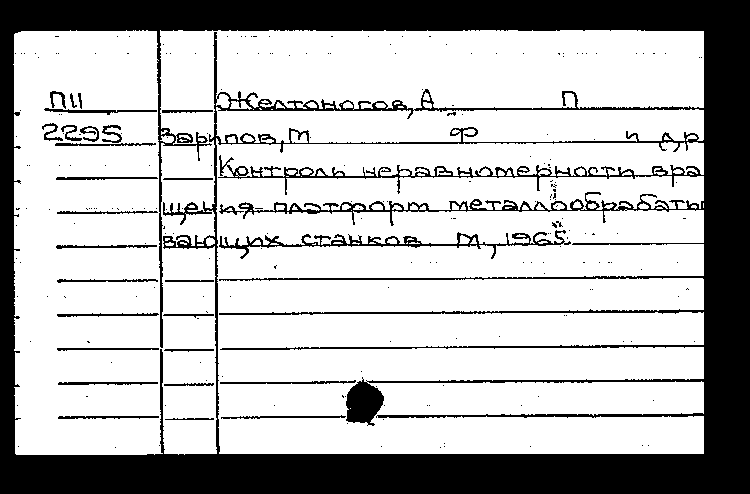 П11 Желтоногов, А. П
2295 Зарипов, М Ф и др
Контроль неравномерности вра
щения платформ металлообрабаты
вающих станков. М., 1965.